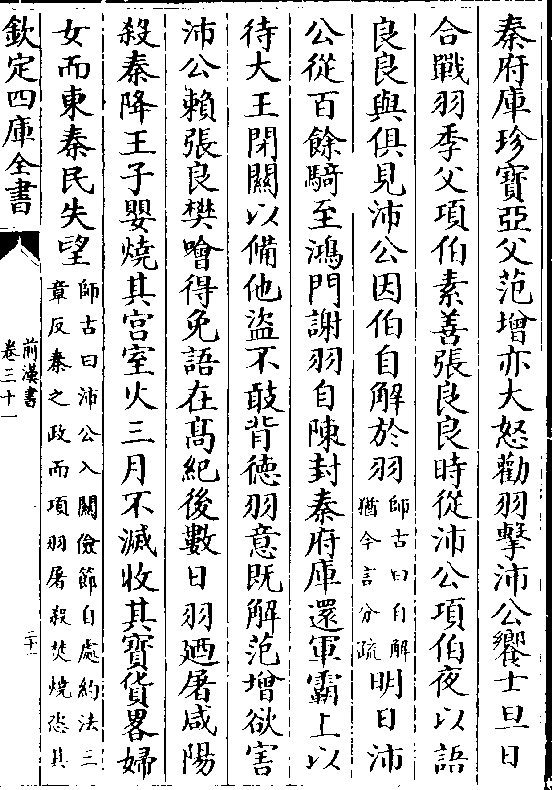 秦府庫珍寶亞父范增亦大怒勸羽擊沛公饗士旦日
合戰羽季父項伯素善張良良時從沛公項伯夜以語
良良與俱見沛公因伯自解於羽師古曰自解猶今言分疏明日沛
公從百餘騎至鴻門謝羽自陳封秦府庫還軍霸上以
待大王閉關以備他盜不敢背德羽意既解范增欲害
沛公賴張良樊噲得免語在髙紀後數日羽廼屠咸陽
殺秦降王子嬰燒其宫室火三月不滅收其寳貨畧婦
女而東秦民失望師古曰沛公入關儉節自處約法三章反秦之政而項羽屠殺焚燒恣其
欽定四庫全書
前漢書
卷三十一
二十一